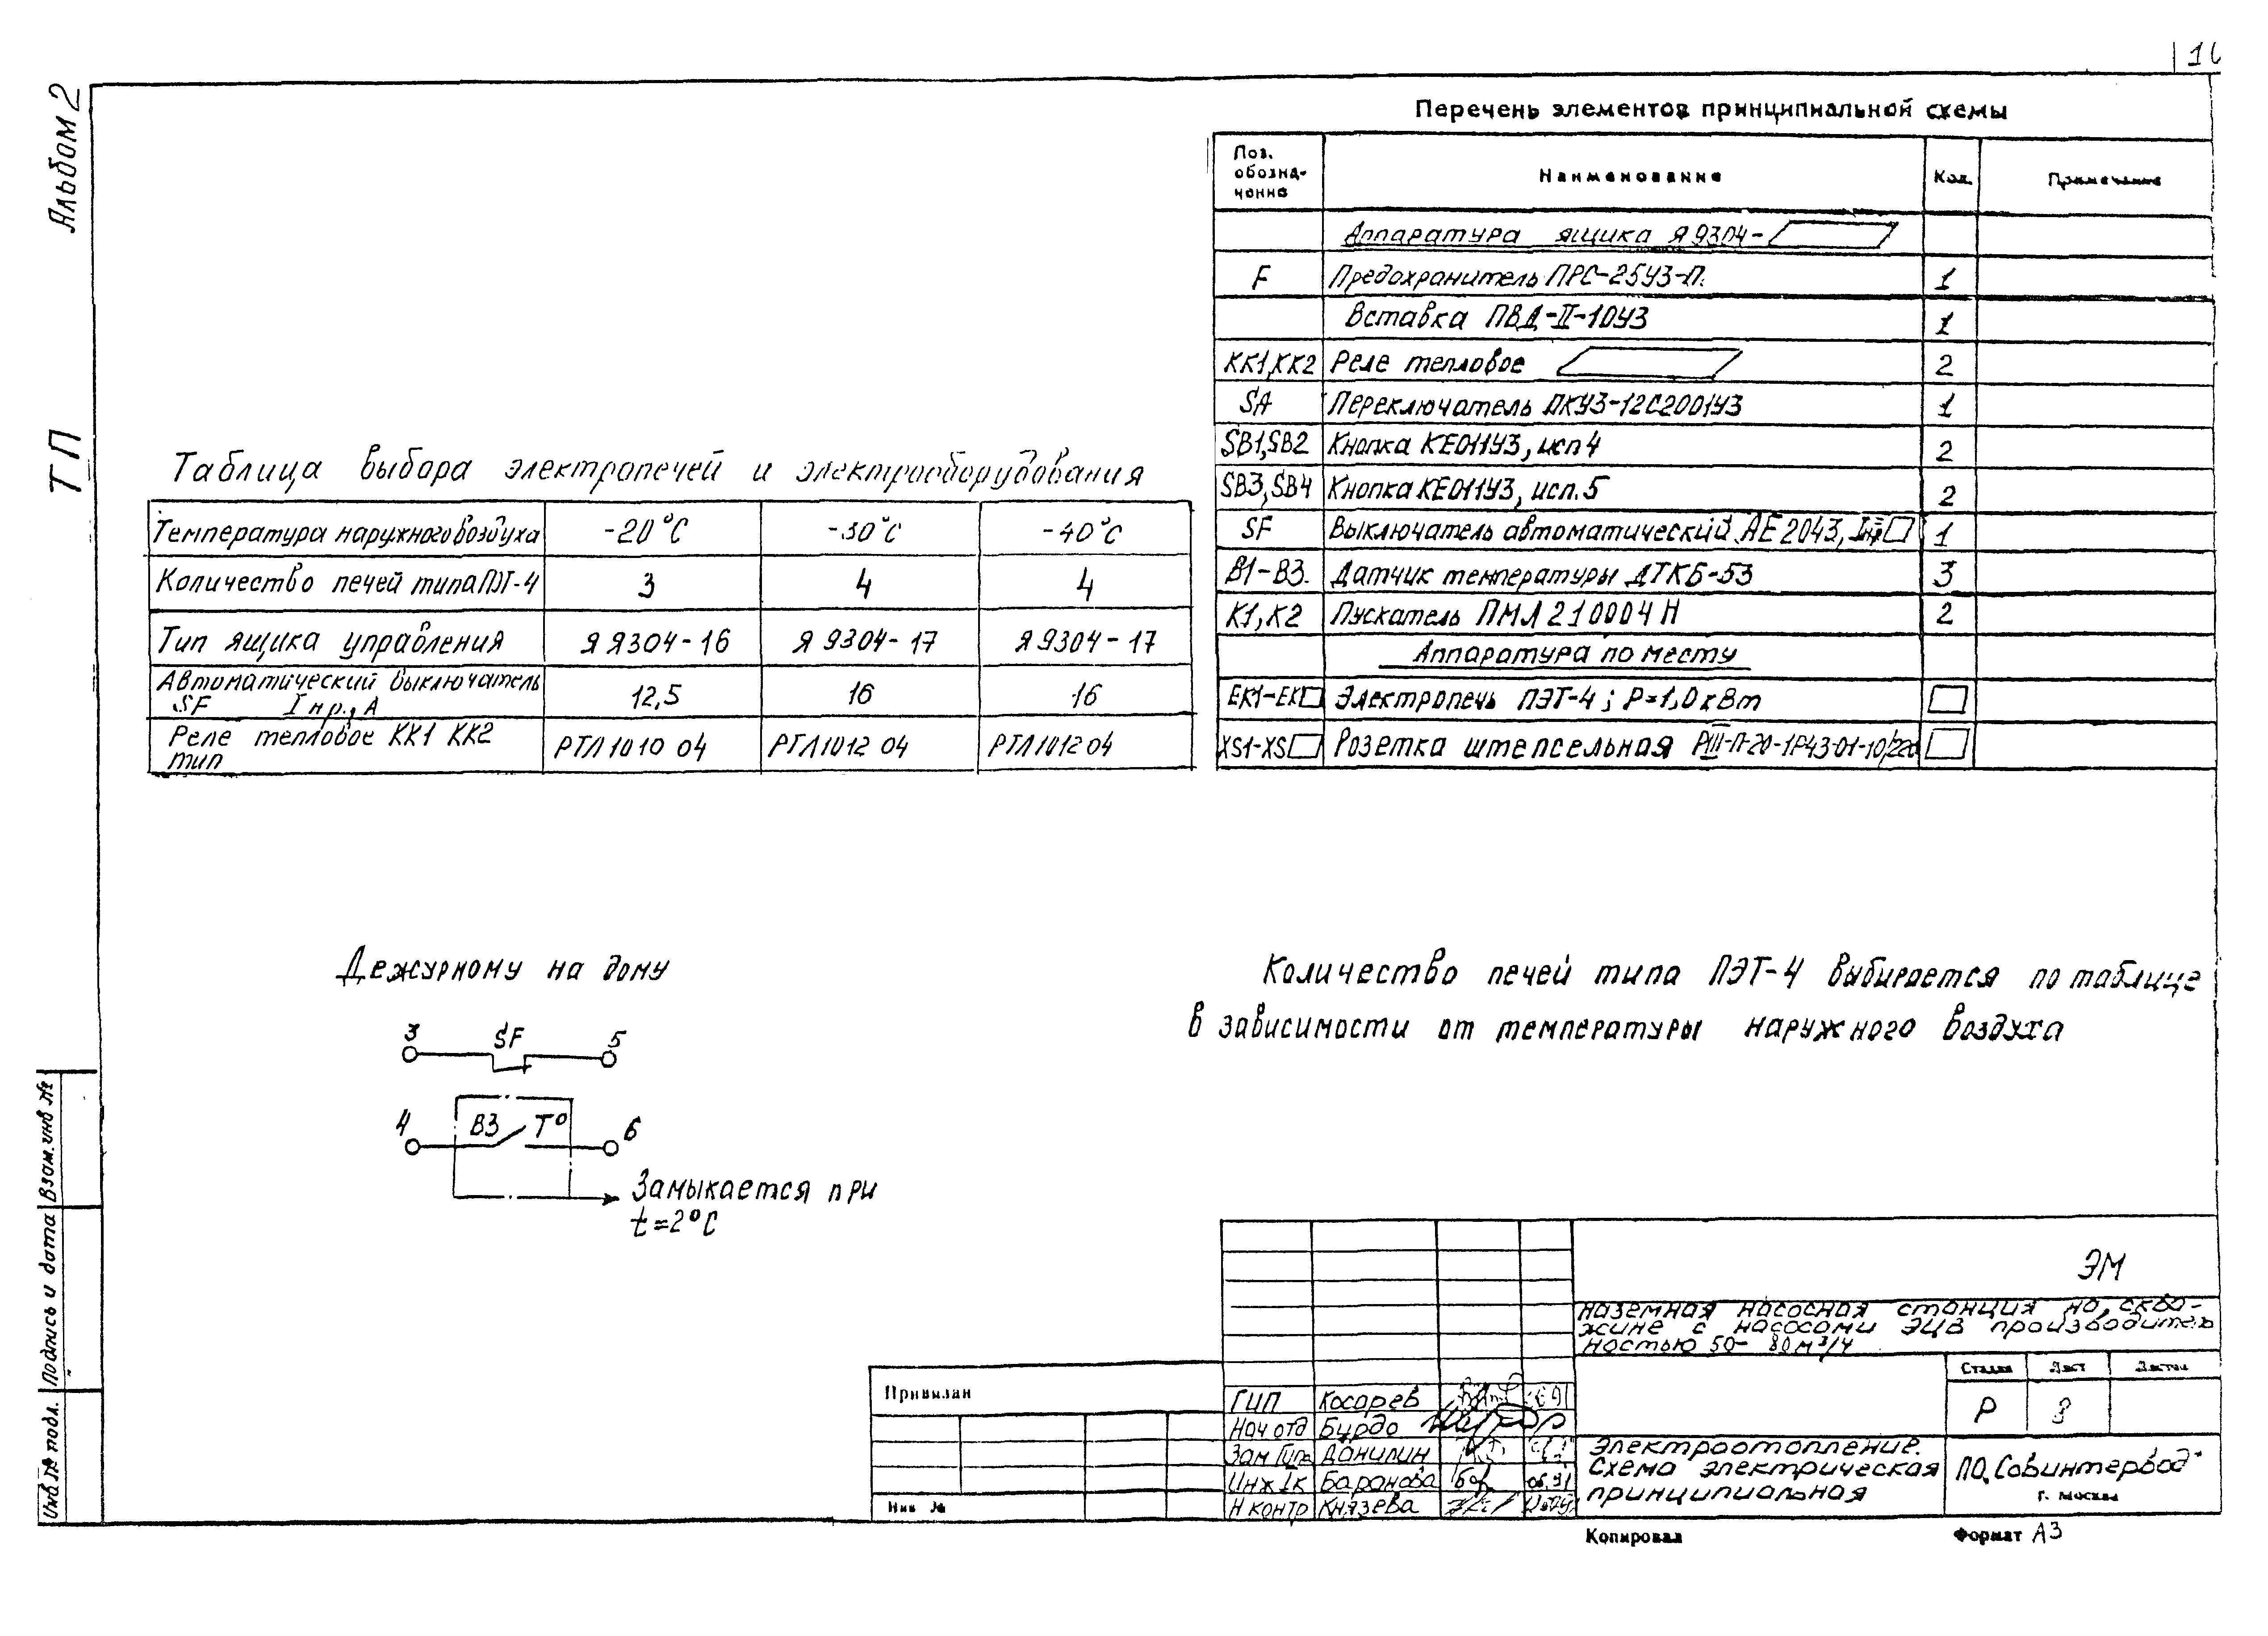 Альбом 2
ТП
Перечень элементов принципиальной схемы
Поз. обозна-чение | Наименование | Кол. | Примечание
Аппаратура ящика Я9304-
F | Предохранитель ПРС-25У3-П. | 1
Вставка ПВД-II-10У3 | 1
KK1,KK2 | Реле тепловое | 2
SA | Переключатель ПКУ3-12С2001У3 | 1
SB1,SB2 | Кнопка КЕ011У3, исп 4 | 2
SB3,SB4 | Кнопка КЕ011У3, исп. 5 | 2
SF | Выключатель автоматический АЕ 2043, Iнр | 1
B1-B3. | Датчик температуры ДТКБ-53 | 3
K1, K2 | Пускатель ПМЛ 210004 Н | 2
Аппаратура по месту
EK1-EK | Электропечь ПЭТ-4; Р=1,0 кВт
XS1-XS | Розетка штепсельная РШ-П-20-1Р43-01-10/220
Таблица выбора электропечей и электрооборудования
Температура наружного воздуха | -20°С | -30°С | -40°С
Количество печей типа ПЭТ-4 | 3 | 4 | 4
Тип ящика управления | Я 9304-16 | Я 9304-17 | Я 9304-17
Автоматический выключатель SF Iнр., А | 12,5 | 16 | 16
Реле тепловое КК1 КК2 тип | РТЛ1010 04 | РТЛ1012 04 | РТЛ1012 04
Дежурному на дому
3 SF 5
4 B3 T° 6
Замыкается при
t=2°C
Количество печей типа ПЭТ-4 выбирается по таблице
в зависимости от температуры наружного воздуха
Взам. инв №
Подпись и дата
Инв. № подл.
ЭМ
Наземная насосная станция на сква-
жине с насосами ЭЦВ производитель
ностью 50- 80 м³/ч
Стадия | Лист | Листов
Р | 8
Привязан
Инв №
ГИП | Косарев
Нач отд | Бурдо
Зам Гипа | Данилин
Инж Iк | Баранова | 06.91
Н контр | Князева
Электроотопление.
Схема электрическая
принципиальная
ПО „Совинтервод"
г. Москва
Копировал
Формат А3